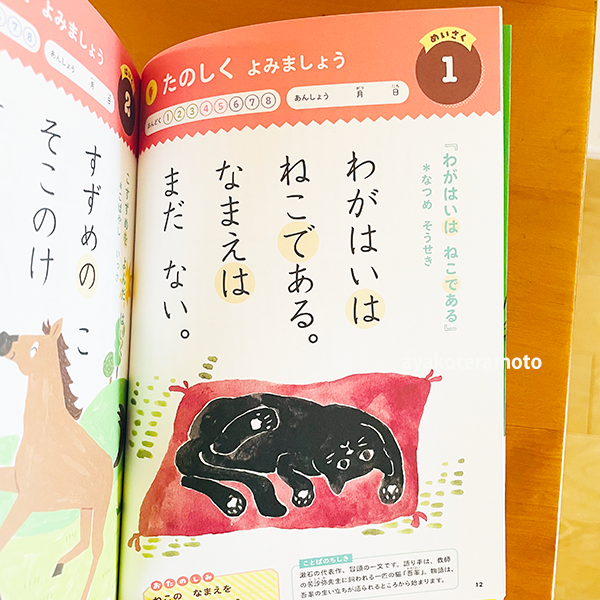 たのしく よみましょう
おんどく 1 2 3 4 5 6 7 8
あんしょう 月 日
めいさく
1
『わがはいは ねこである』
*なつめ そうせき
わがはいは
ねこである。
なまえは
まだ ない。
ことばのちしき
漱石の代表作、冒頭の一文です。語り手は、教師
の苦沙弥先生に飼われる一匹の猫「吾輩」。物語は、
吾輩の生い立ちが語られるところから始まります。
おたのしみ
ねこの なまえを
12
よみましょう
7 8
あんしょう 月 日
2
すずめの こ
そこのけ
ayakoteramoto